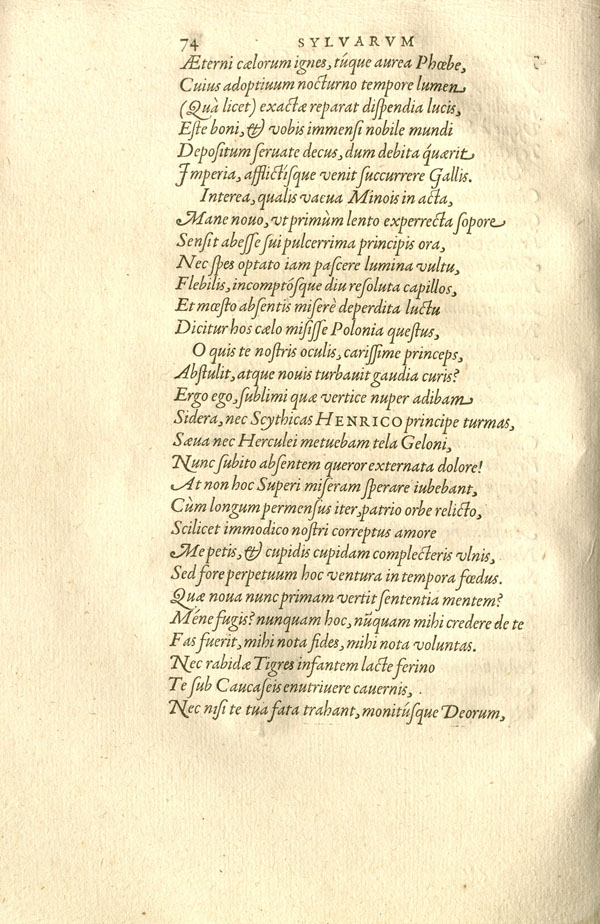 74 SYLVARVM
Æterni cælorum ignes, túque aurea Phœbe,
Cuius adoptiuum nocturno tempore lumen
(Quà licet) exactæ reparat dispendia lucis,
Este boni, & vobis immensi nobile mundi
Depositum seruate decus, dum debita quærit
Imperia, afflictísque venit succurrere Gallis.
Interea, qualis vacua Minois in acta,
Mane nouo, vt primùm lento experrecta sopore
Sensit abesse sui pulcerrima principis ora,
Nec spes optato iam pascere lumina vultu,
Flebilis, incomptósque diu resoluta capillos,
Et mœsto absentis miserè deperdita luctu
Dicitur hos cælo misisse Polonia questus,
O quis te nostris oculis, carissime princeps,
Abstulit, atque nouis turbauit gaudia curis?
Ergo ego, sublimi quæ vertice nuper adibam
Sidera, nec Scythicas HENRICO principe turmas,
Sæua nec Herculei metuebam tela Geloni,
Nunc subito absentem queror externata dolore!
At non hoc Superi miseram sperare iubebant,
Cùm longum permensus iter, patrio orbe relicto,
Scilicet immodico nostri correptus amore
Me petis, & cupidis cupidam complecteris vlnis,
Sed fore perpetuum hoc ventura in tempora fœdus.
Quæ noua nunc primam vertit sententia mentem?
Méne fugis? nunquam hoc, nũquam mihi credere de te
Fas fuerit, mihi nota fides, mihi nota voluntas.
Nec rabidæ Tigres infantem lacte ferino
Te sub Caucaseis enutriuere cauernis,
Nec nisi te tua fata trahant, monitúsque Deorum,